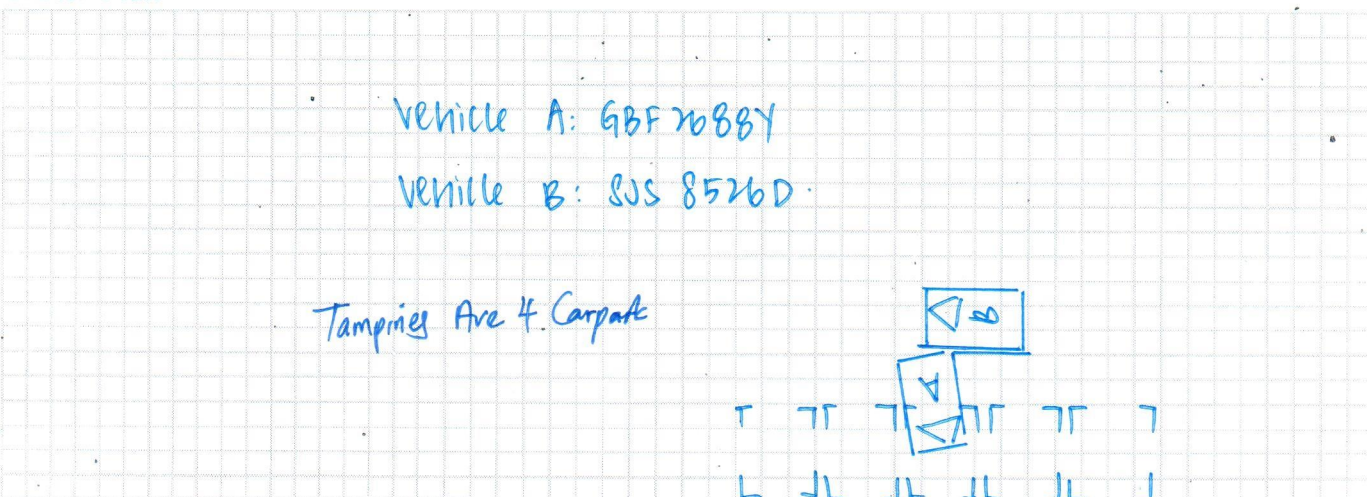 Vehicle A: GBF2688Y
Vehicle B: SJS 8526D.
Tampines Ave 4 Carpark
B
A